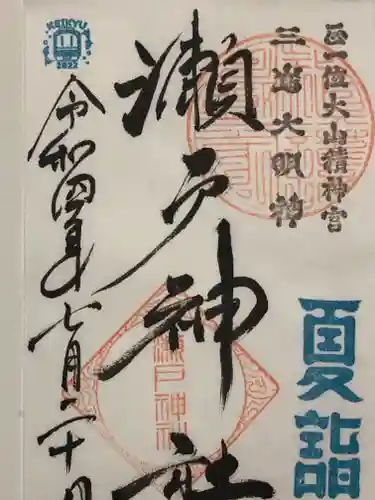 正一位大山積神宮
三嶋大明神
夏詣
瀬戸神社
瀬戸神社
令和四年七月二十日
KEIKYU
2022